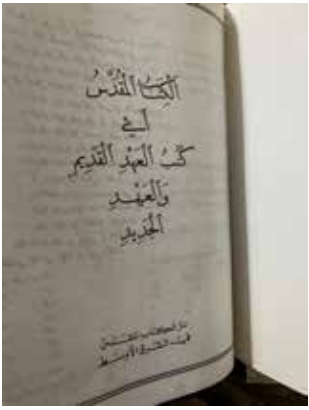 الكِتَابُ المُقَدَّسُ
أَيْ
كُتُبُ العَهْدِ القَدِيمِ
وَالعَهْدِ
الجَدِيدِ
دار الكتاب المقدس
في الشرق الأوسط